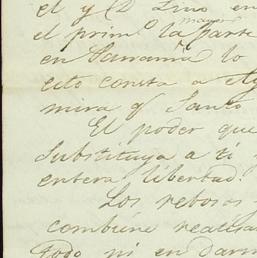 el y D Lino en
el prim.º la mayor parte
en Panamá lo
esto consta a
mira q.e Santo
El poder que
substituya a ti
entera libertad.
Los rebosos
combiene realisar
todo ni en darm